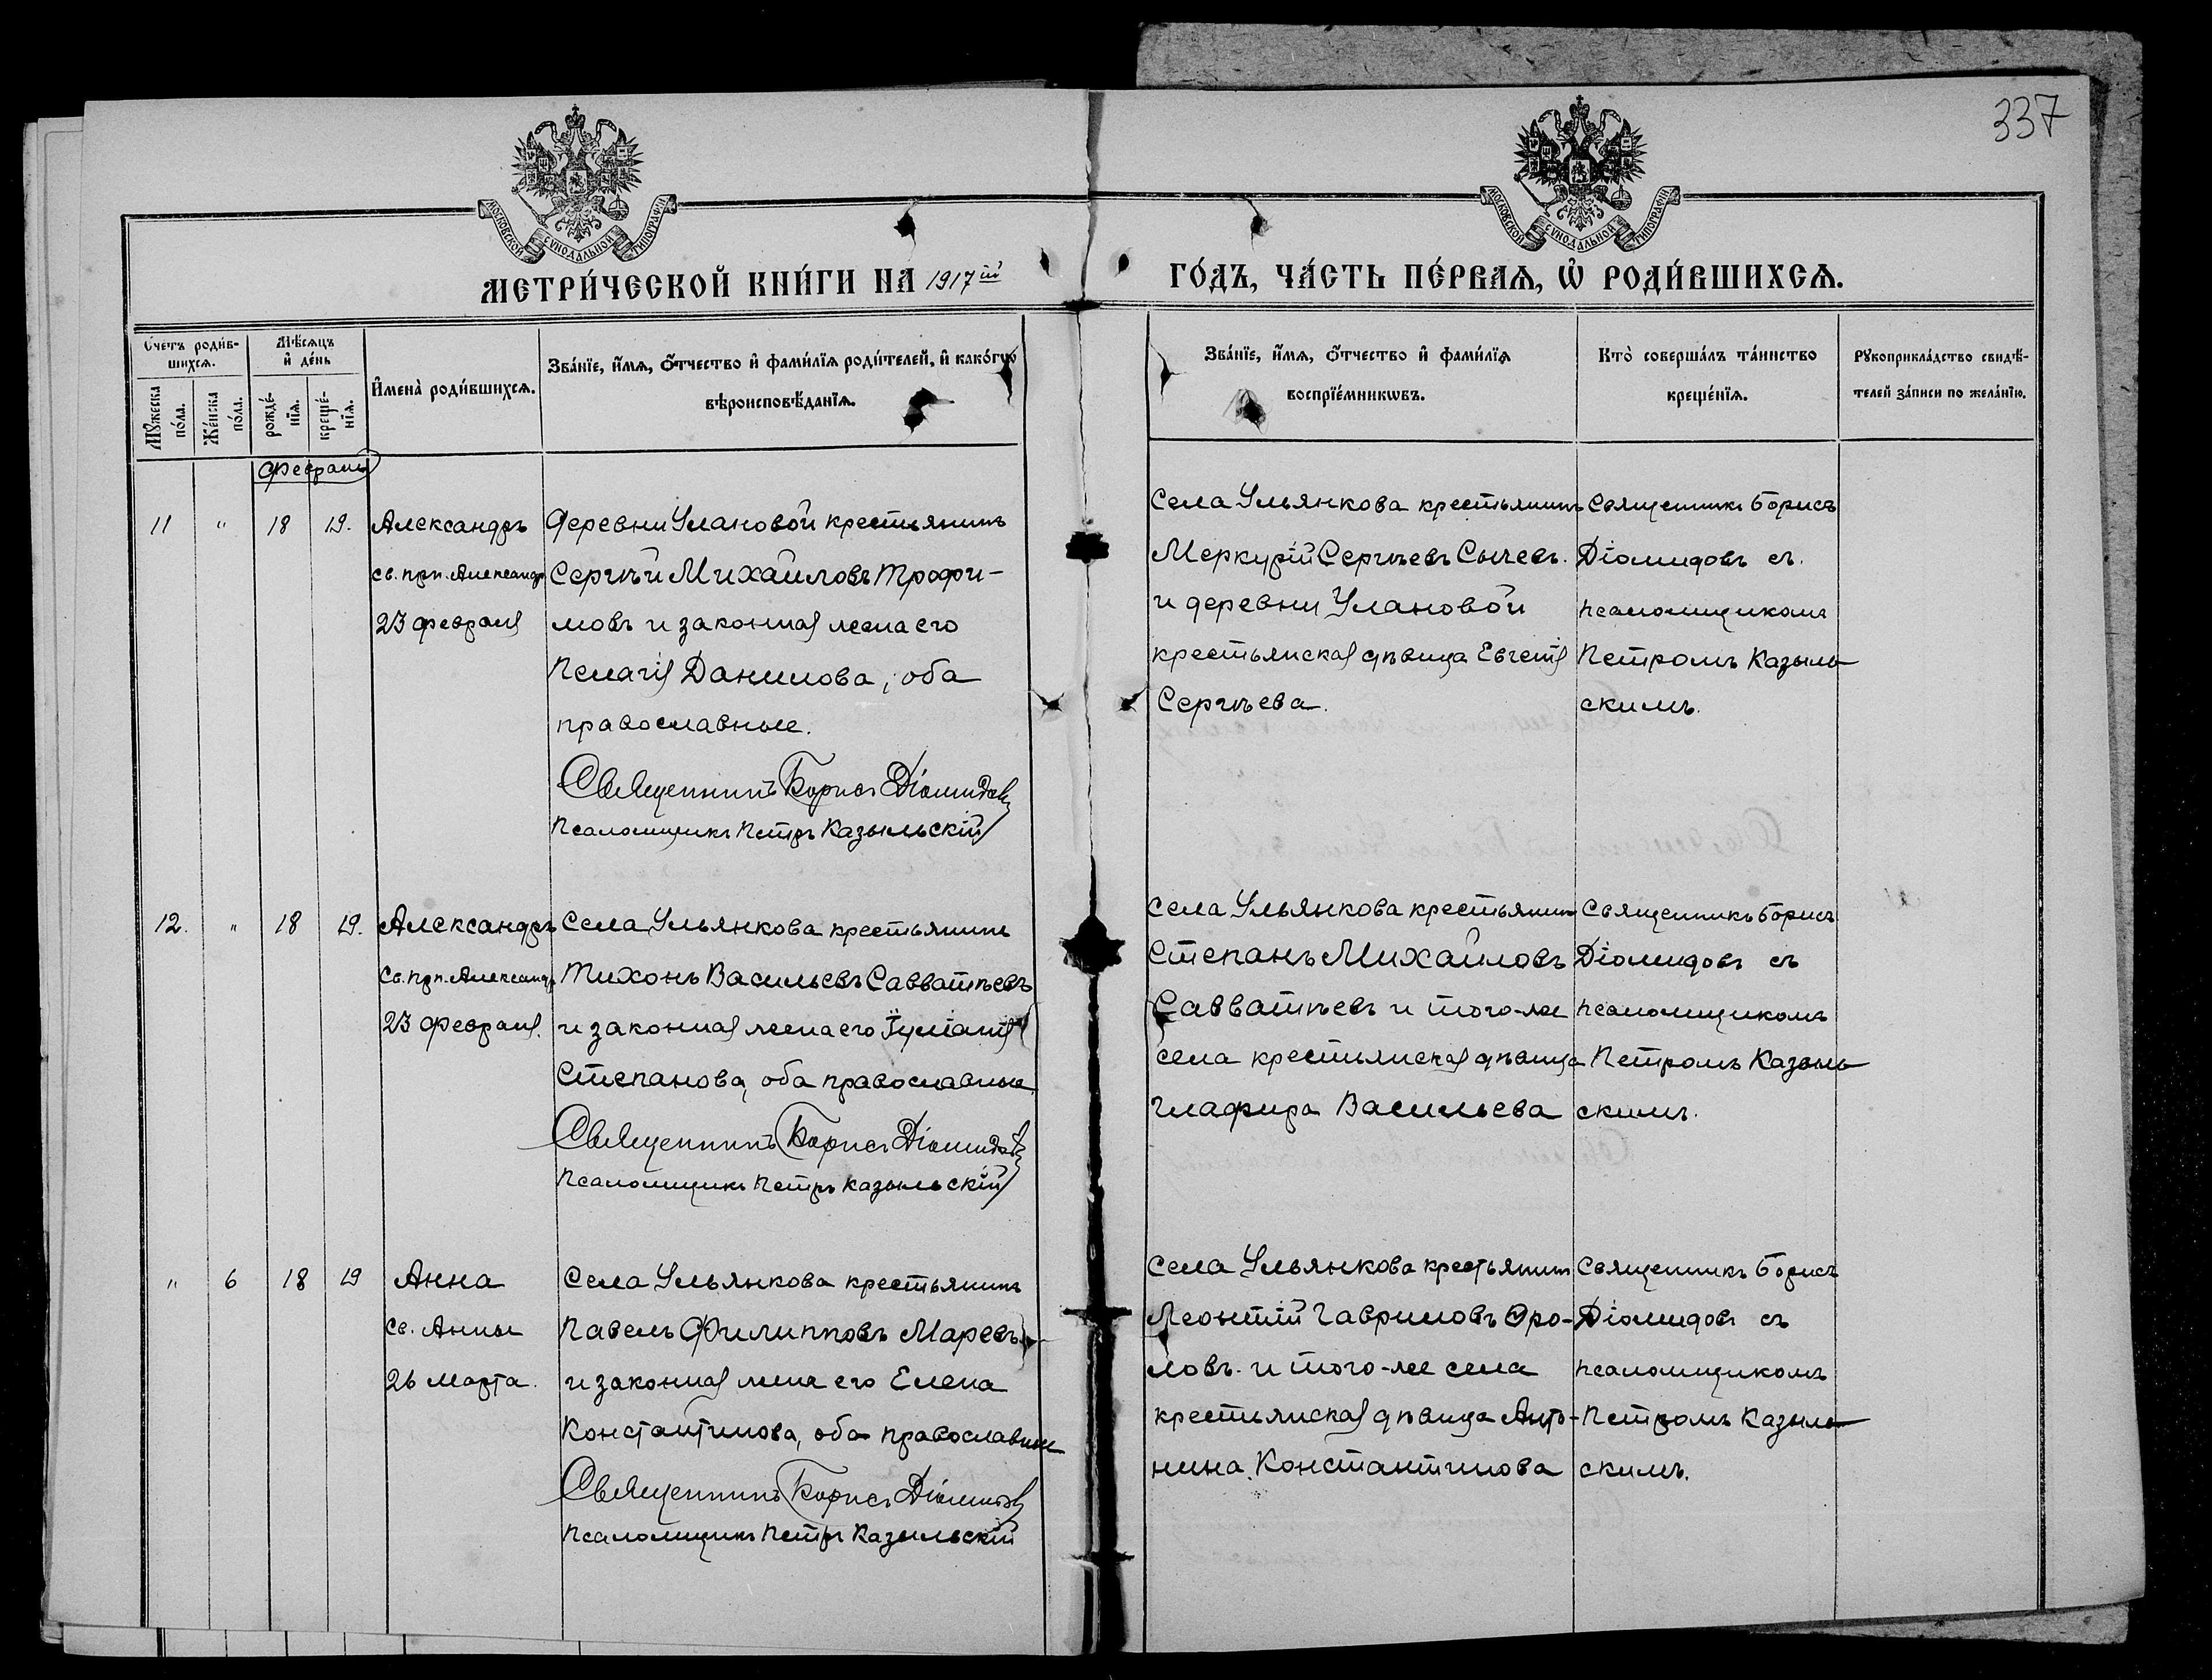 337
МОСКОВСКОЙ СѴНОДАЛЬНОЙ ТИПОГРАФІИ
МОСКОВСКОЙ СѴНОДАЛЬНОЙ ТИПОГРАФІИ
МЕТРИ́ЧЕСКОЙ КНИ́ГИ НА 1917й ГО́ДЪ, ЧА́СТЬ ПЕ́РВАѦ, Ѡ҆ РОДИ́ВШИХСѦ.
Счетъ роди́в-
шихсѧ.
Мꙋжеска по́ла.
Же́нска по́ла.
Мѣ́сѧцъ
и҆ де́нь
рожде́-
нїѧ.
креще́-
нїѧ.
И҆мена̀ роди́вшихсѧ.
Зва́нїе, и҆́мѧ, ѻ҆́тчество и҆ фами́лїѧ роди́телей, и҆ како́гѡ
вѣроисповѣ́данїѧ.
Зва́нїе, и҆́мѧ, ѻ҆́тчество и҆ фами́лїѧ
воспрїе́мникѡвъ.
Кто̀ соверша́лъ та́инство
креще́нїѧ.
Рꙋкоприкла́дство свидѣ́-
телей за́писи по жела́нїю.
Февраль
11 " 18 19.
Александръ
св. прп. Александр
23 февраля
Деревни Улановой крестьянинъ
Сергѣй Михайловъ Трофи-
мовъ и законная жена его
Пелагія Данилова, оба
православные.
Священникъ Борисъ Діомидовъ
Псаломщикъ Петръ Казыльскій
Села Ульянкова крестьянинъ
Меркурій Сергѣевъ Сычевъ.
и деревни Улановой
крестьянская дѣвица Евгенія
Сергѣева.
Священникъ Борисъ
Діомидовъ съ.
псаломщикомъ
Петромъ Казыль-
скимъ.
12. " 18 19.
Александръ
Св. прп. Александр
23 февраля.
Села Ульянкова крестьянинъ
Тихонъ Васильевъ Савватѣевъ
и законная жена его Іуліанія
Степанова, оба православные.
Священникъ Борисъ Діомидовъ
Псаломщикъ Петръ Казыльскій
Села Ульянкова крестьянинъ
Степанъ Михайловъ
Савватѣевъ и того-же
села крестьянская дѣвица
Глафира Васильева
Священникъ Борисъ
Діомидовъ съ
псаломщикомъ
Петромъ Казыль-
скимъ.
" 6 18 19
Анна
Св. Анны
26 марта.
Села Ульянкова крестьянинъ
Павелъ Филипповъ Маревъ
и законная жена его Елена
Константинова, оба православные
Священникъ Борисъ Діомидовъ
Псаломщикъ Петръ Казыльскій
Села Ульянкова крестьянинъ
Леонтій Гавриловъ Фро-
ловъ. и того-же села
крестьянская дѣвица Анто-
нина Константинова
Священникъ Борисъ
Діомидовъ съ
псаломщикомъ
Петромъ Казыль-
скимъ.